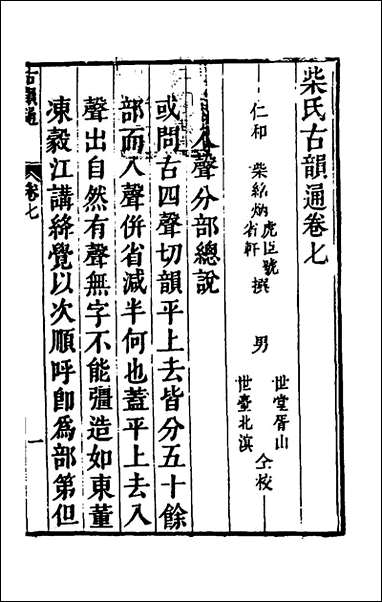 柴氏古韻通卷七
仁和 柴紹炳虎臣號省軒撰 男 世堂胥山 世臺北溟 仝校
入聲分部總說
或問古四聲切韻平上去皆分五十餘
部而入聲併省減半何也蓋平上去入
聲出自然有聲無字不能彊造如東董
凍縠江講絳覺以次順呼卽爲部第但
古韻通
卷七
一